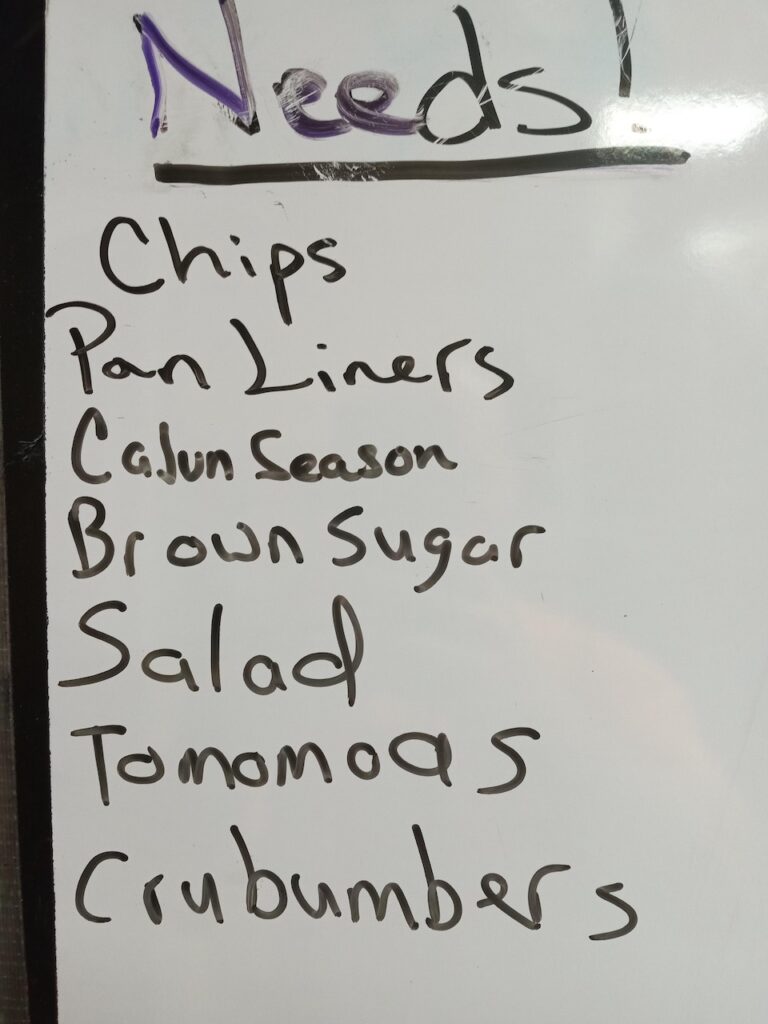 Needs!
Chips
Pan Liners
Cajun Season
Brown Sugar
Salad
Tomomoas
Crubumbers